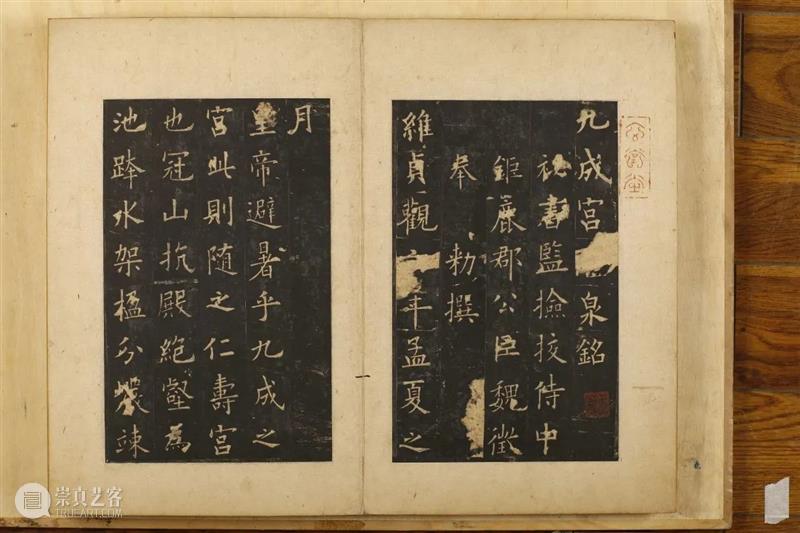 九成宮泉銘
秘書監撿挍侍中
鉅鹿郡公臣魏徵
奉 勅撰
維貞觀六年孟夏之
月
皇帝避暑乎九成之
宮此則隨之仁壽宮
也冠山抗殿絶壑為
池跨水架楹分巖竦
崇真艺客
TRUEART.COM